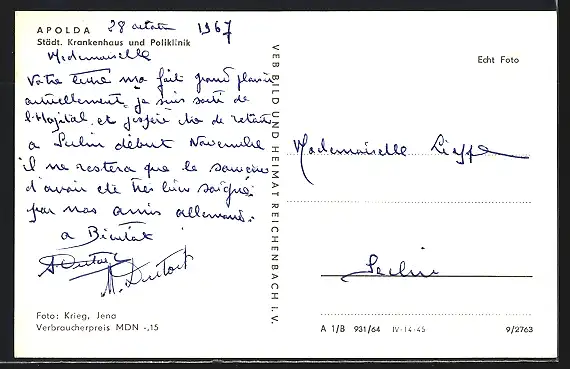 APOLDA 28 octobre 1967
Städt. Krankenhaus und Poliklinik
Mademoiselle
Votre lettre m'a fait grand plaisir
actuellement je suis sorti de
l'Hopital et j'espère être de retour
a Seclin début Novembre
il ne restera que le souvenir
d'avoir été très bien soigné
par nos amis allemands.
a Bientot
Dutoit
M. Dutoit
Foto: Krieg, Jena
Verbraucherpreis MDN -,15
VEB BILD UND HEIMAT REICHENBACH i. V.
Echt Foto
Mademoiselle
Seclin
A 1/B 931/64 IV-14-45 9/2763